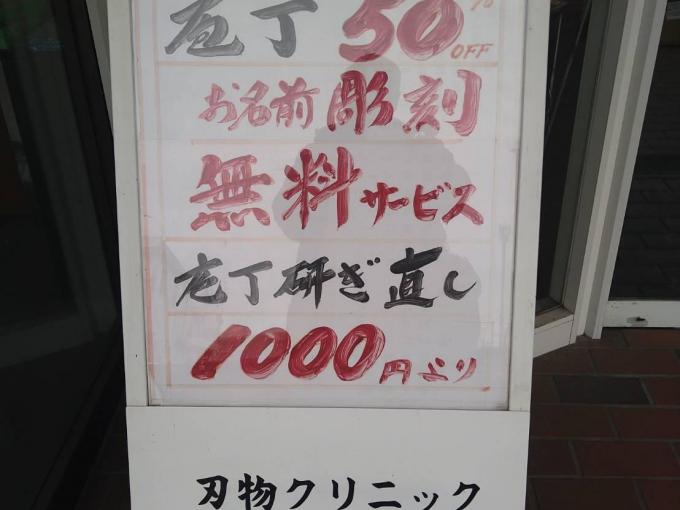 庖丁 50% OFF
お名前彫刻
無料サービス
庖丁研ぎ直し
1000円より
刃物クリニック